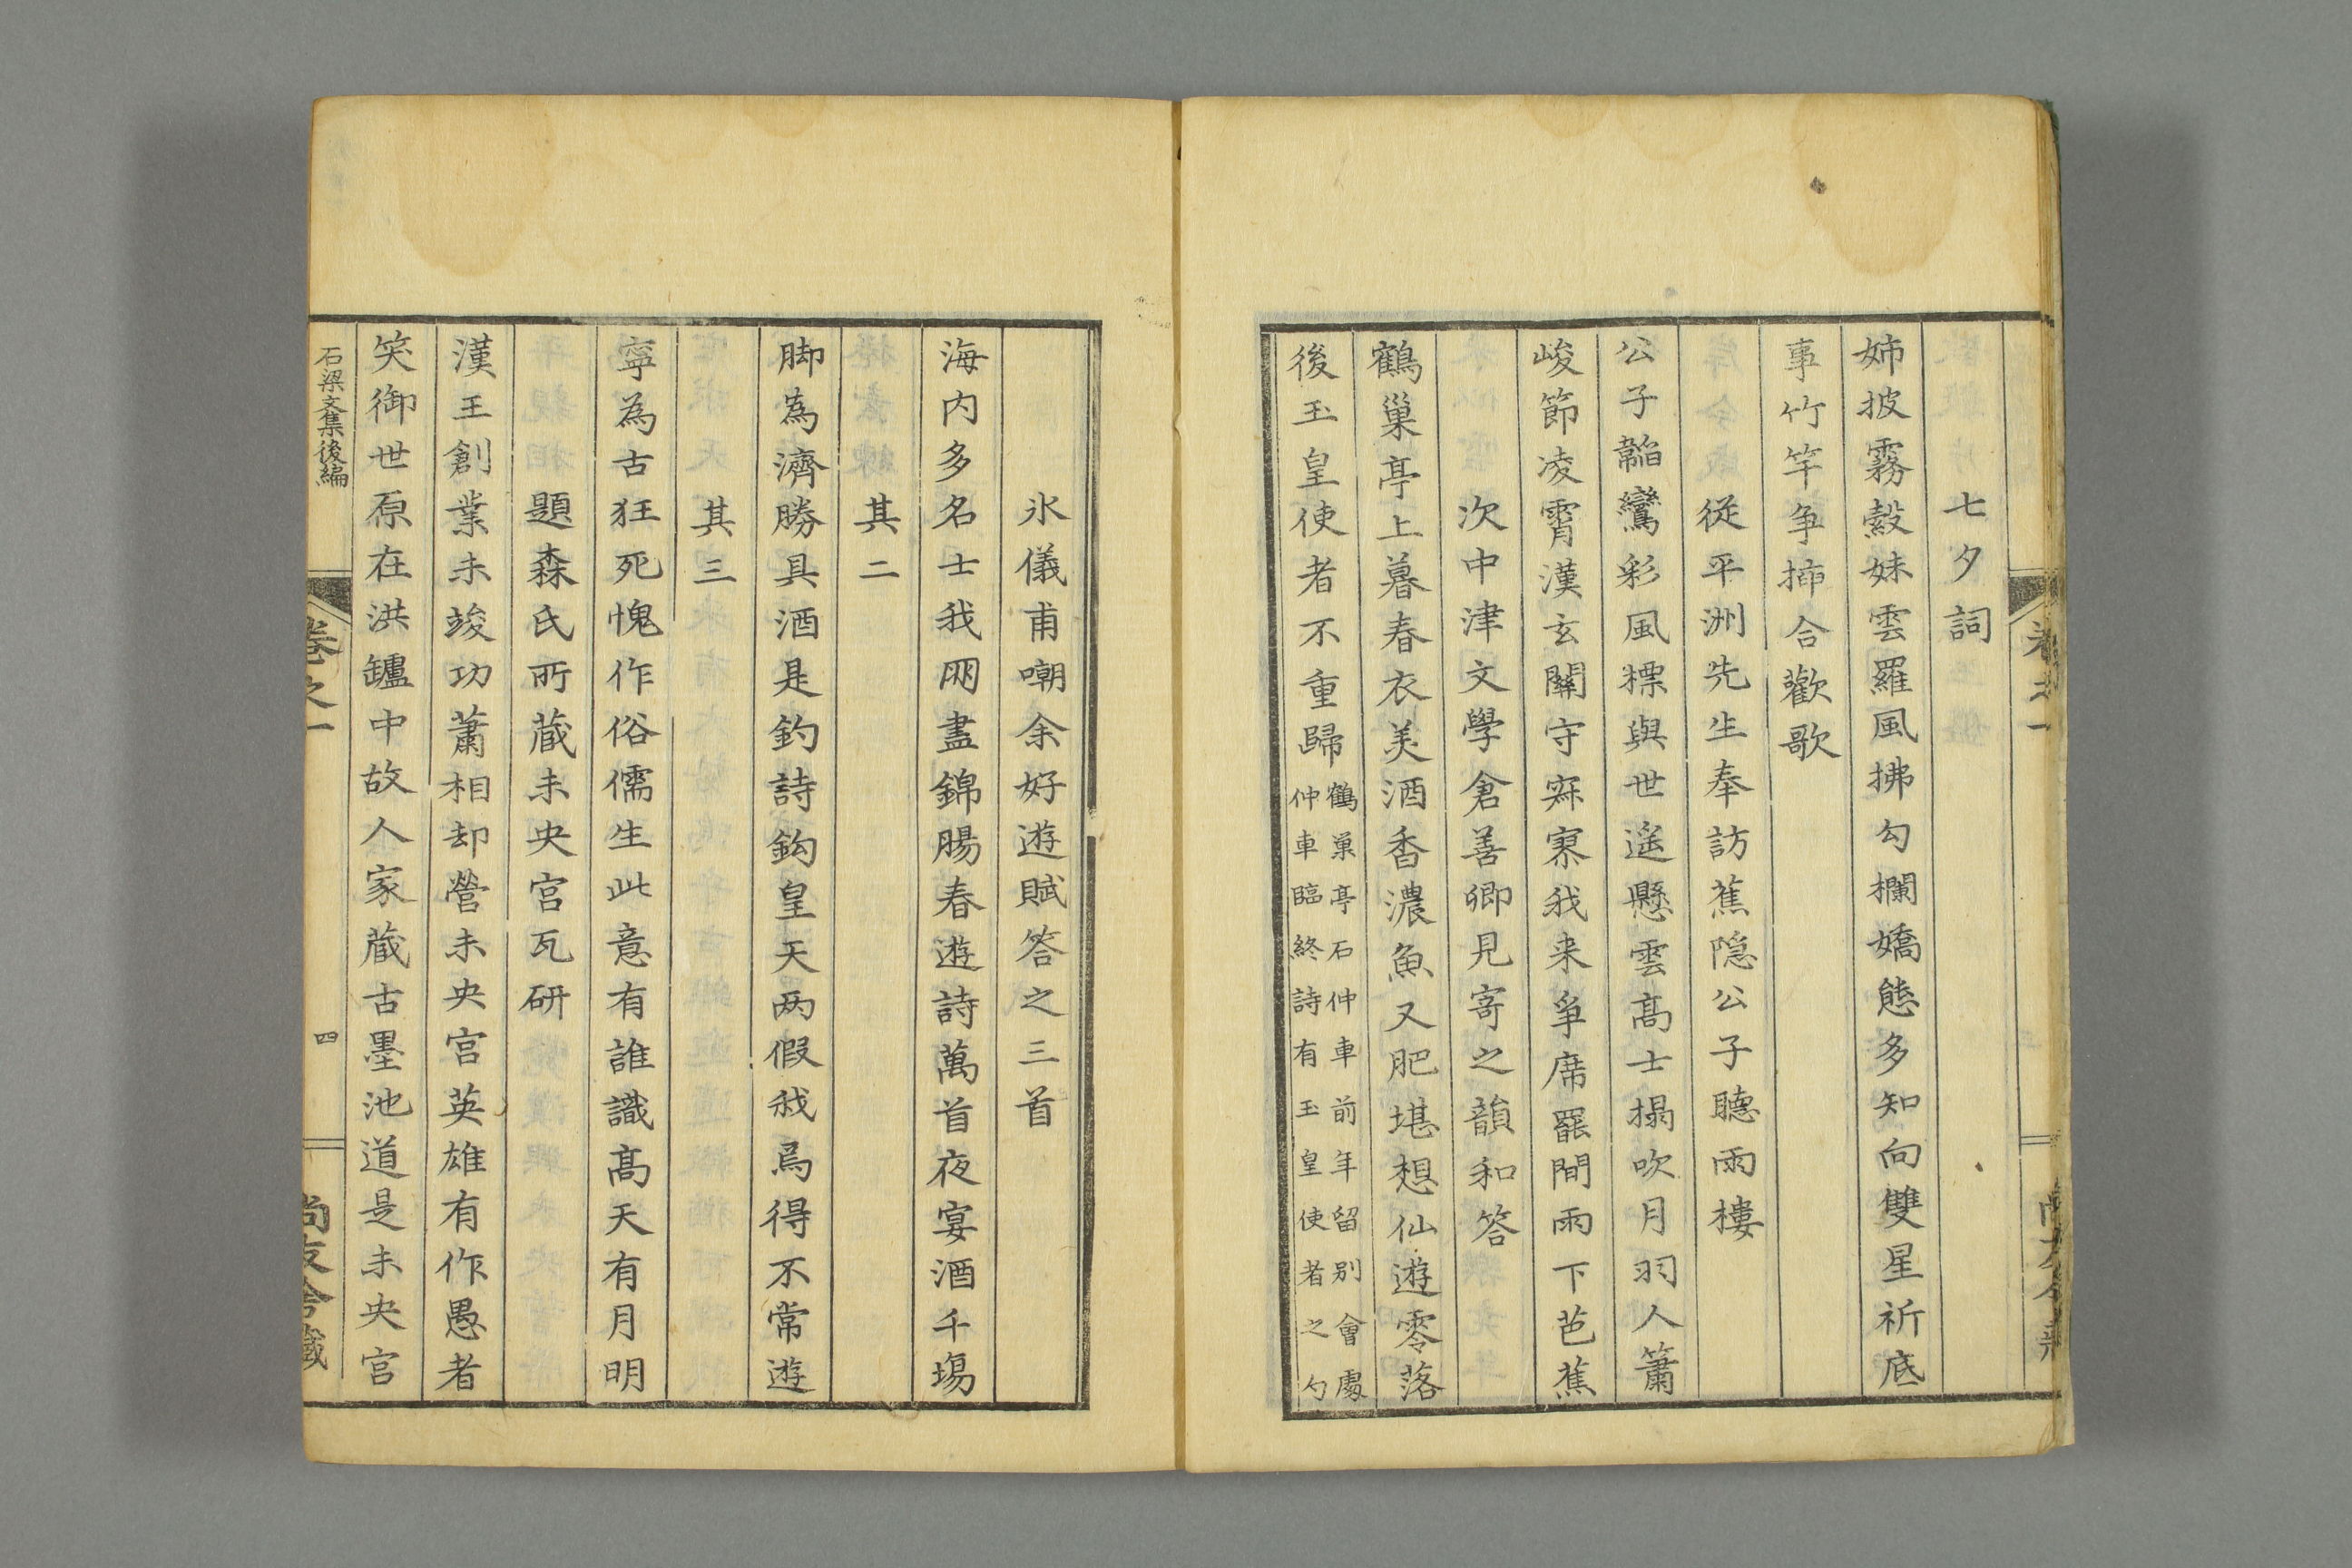 七夕詞
姉披霧縠妹雲羅風拂勾欄嬌態多知向雙星祈底
事竹竿争揷合歡歌
従平洲先生奉訪蕉隠公子聽雨樓
公子韜鸞彩風標與世遥懸雲髙士榻吹月羽人簫
峻節凌霄漢玄關守寂寥我来爭席罷閒雨下芭蕉
次中津文學倉善卿見寄之韻和答
鶴巢亭上暮春衣美酒香濃魚又肥堪想仙遊零落
後玉皇使者不重歸
鶴巢亭石仲車前年留別會處
仲車臨終詩有玉皇使者之句
氷儀甫嘲余好遊賦答之三首
海内多名士我网盡錦腸春遊詩萬首夜宴酒千場
其二
脚為濟勝具酒是釣詩鈎皇天两假我烏得不常遊
其三
寧為古狂死愧作俗儒生此意有誰識髙天有月明
題森氏所蔵未央宮瓦研
漢王創業未竣功蕭相却營未央宮英雄有作愚者
笑御世原在洪罏中故人家蔵古墨池道是未央宮
石梁文集後編
卷之一
四
尚友舎藏